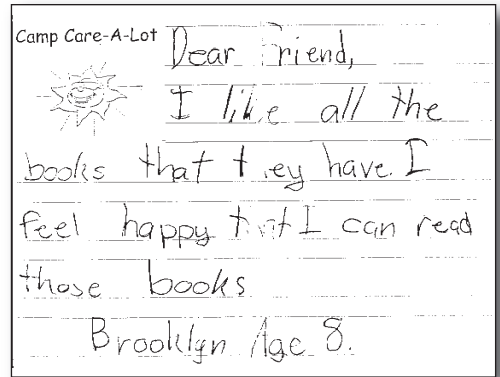 Camp Care-A-Lot
Dear Friend,
I like all the
books that they have. I
feel happy that I can read
those books
Brooklyn Age 8.